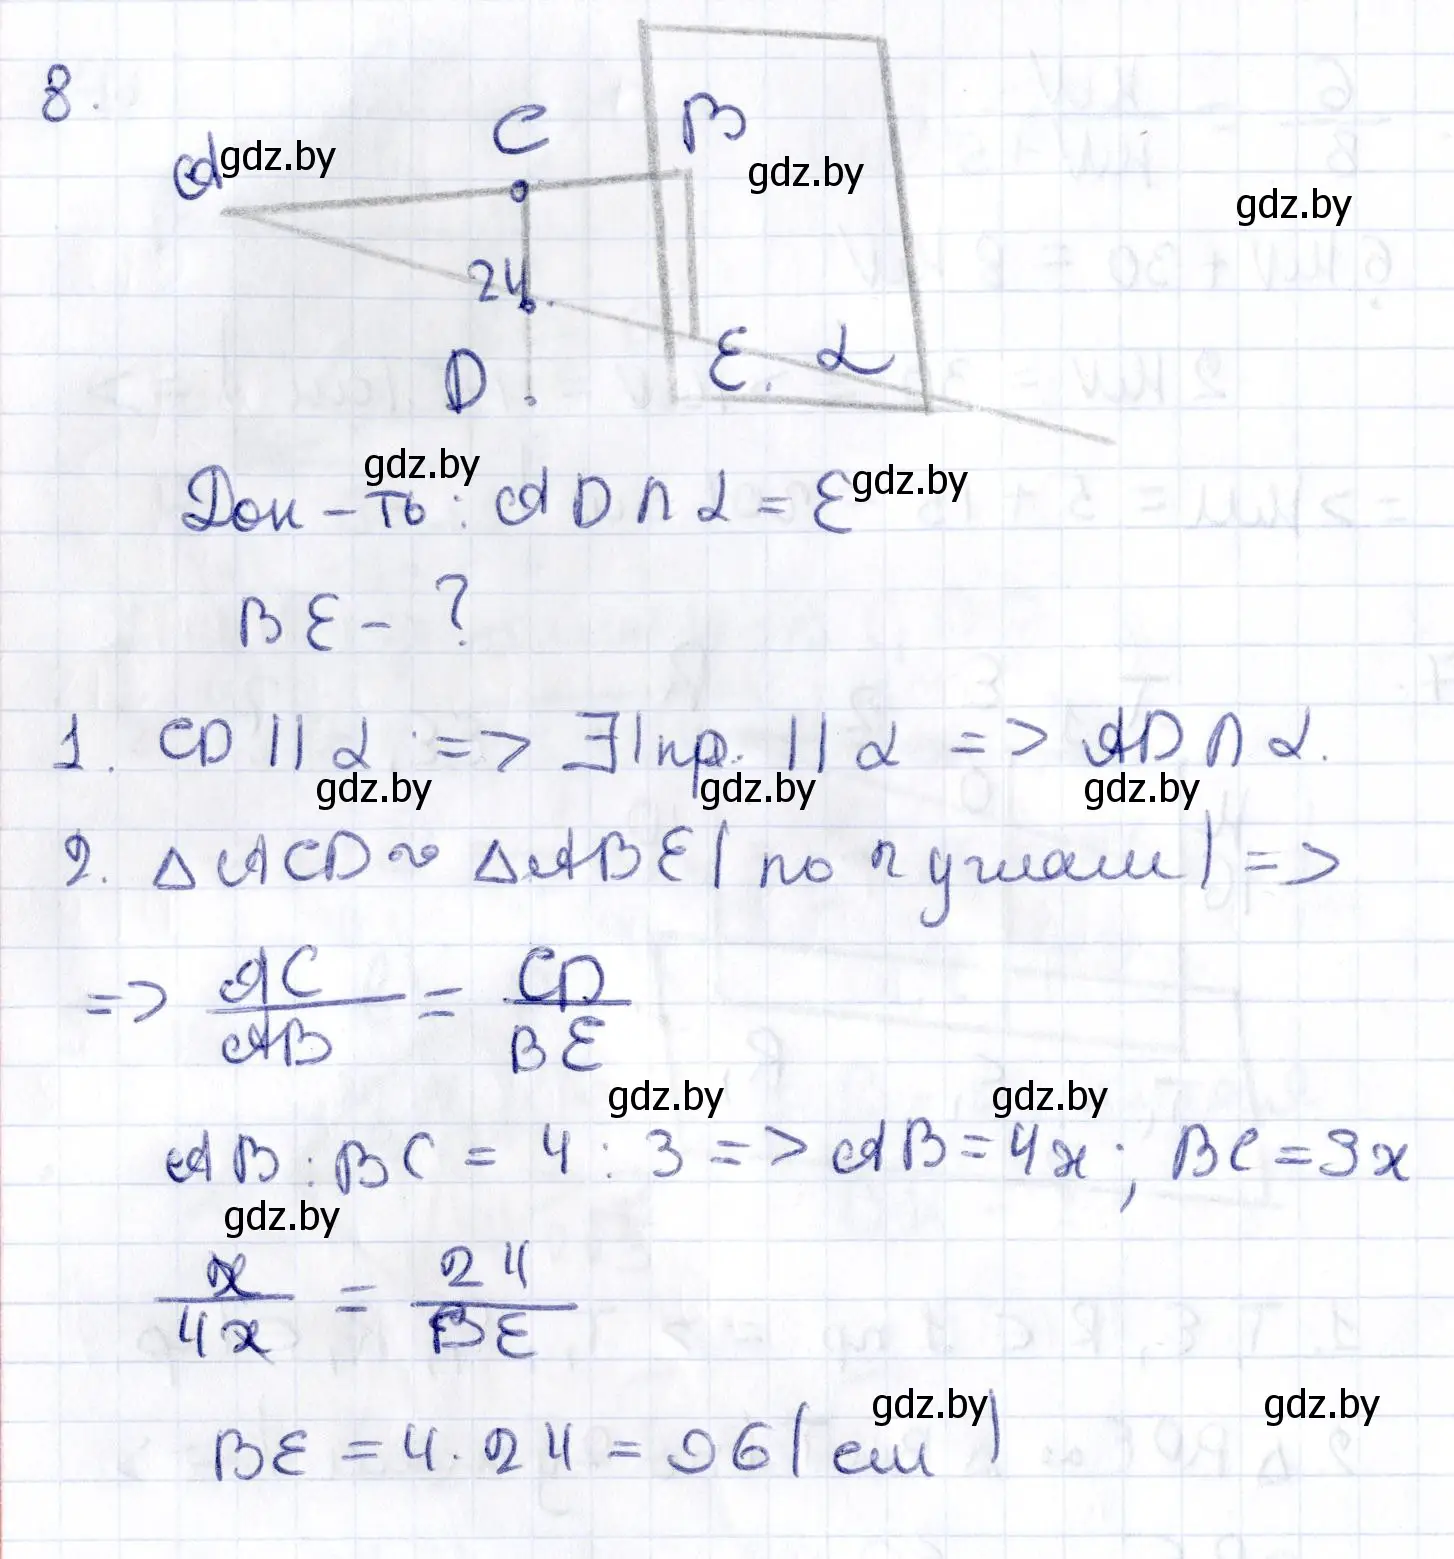 8.
A
C
B
24
D
E
α
Док-ть: AD ∩ α = E
BE - ?
1. CD || α => ∃! пр. || α => AD ∩ α.
2. △ACD ~ △ABE (по 2 углам) =>
=> AC/AB = CD/BE
AB : BC = 4 : 3 => AB = 4x; BC = 3x
x/4x = 24/BE
BE = 4 · 24 = 96 (см)
gdz.by
gdz.by
gdz.by
gdz.by
gdz.by
gdz.by
gdz.by
gdz.by
gdz.by
gdz.by
gdz.by
gdz.by
gdz.by